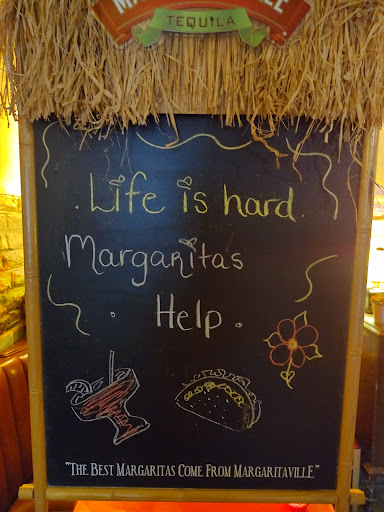 TEQUILA
Life is hard.
Margaritas
Help.
"THE BEST MARGARITAS COME FROM MARGARITAVILLE"